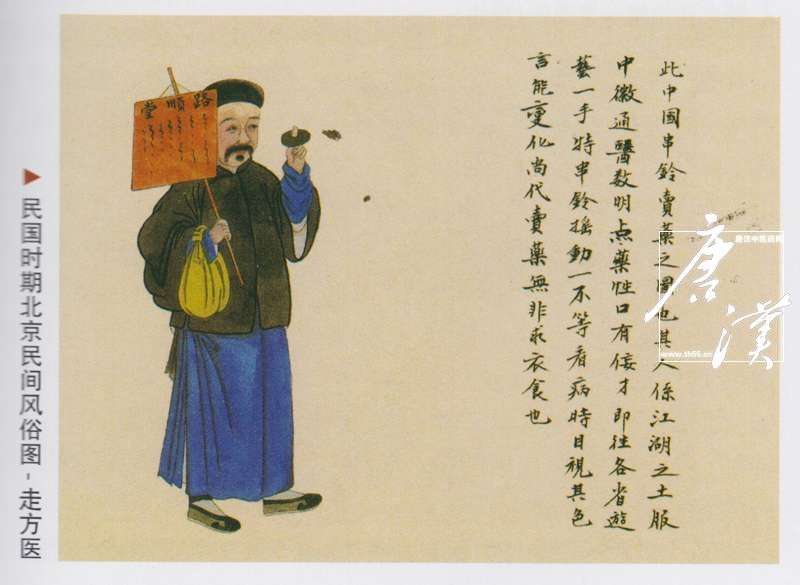 此中國串鈴賣藥之圖也其人係江湖之土服
中徽通醫数明点藥性口有佞才即往各省遊
藝一手持串鈴搖動一不等看病時目視其色
言能變化尚代賣藥無非求衣食也
路順堂
▶ 民国时期北京民间风俗图-走方医
唐漢
唐汉中医药网
www.th55.cn